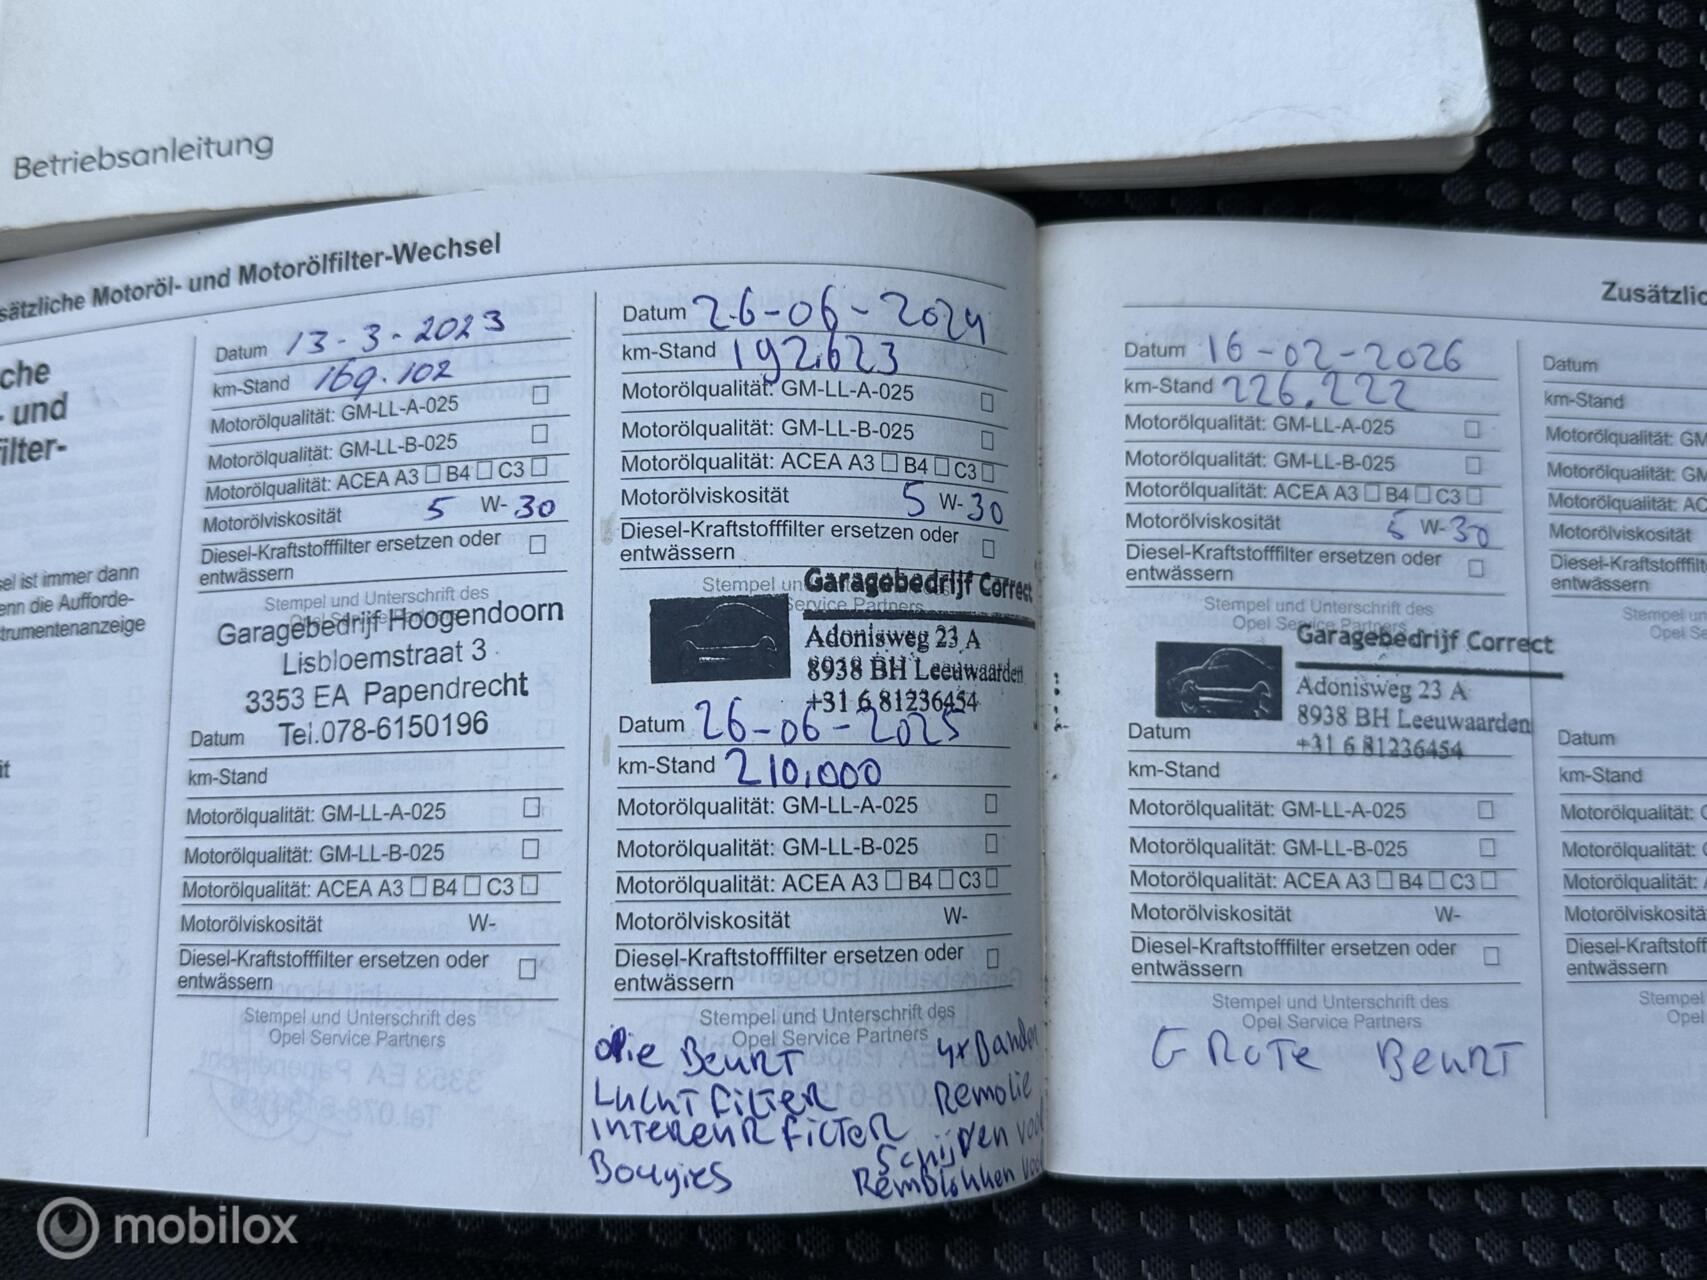 Betriebsanleitung
sätzliche Motoröl- und Motorölfilter-Wechsel
che
- und
filter-
sel ist immer dann
enn die Aufforde-
trumentenanzeige
it
Datum 13-3-2023
km-Stand 169.102
Motorölqualität: GM-LL-A-025
Motorölqualität: GM-LL-B-025
Motorölqualität: ACEA A3 B4 C3
Motorölviskosität 5 W-30
Diesel-Kraftstofffilter ersetzen oder
entwässern
Stempel und Unterschrift des
Opel Service Partners
Garagebedrijf Hoogendoorn
Lisbloemstraat 3
3353 EA Papendrecht
Tel.078-6150196
Datum
km-Stand
Motorölqualität: GM-LL-A-025
Motorölqualität: GM-LL-B-025
Motorölqualität: ACEA A3 B4 C3
Motorölviskosität W-
Diesel-Kraftstofffilter ersetzen oder
entwässern
Stempel und Unterschrift des
Opel Service Partners
Datum 26-06-2024
km-Stand 192.623
Motorölqualität: GM-LL-A-025
Motorölqualität: GM-LL-B-025
Motorölqualität: ACEA A3 B4 C3
Motorölviskosität 5 W-30
Diesel-Kraftstofffilter ersetzen oder
entwässern
Stempel un
Service Partners
Garagebedrijf Correct
Adonisweg 23 A
8938 BH Leeuwaarden
+31 6 81236454
Datum 26-06-2025
km-Stand 210.000
Motorölqualität: GM-LL-A-025
Motorölqualität: GM-LL-B-025
Motorölqualität: ACEA A3 B4 C3
Motorölviskosität W-
Diesel-Kraftstofffilter ersetzen oder
entwässern
Stempel und Unterschrift des
Opel Service Partners
olie Beurt 4x Banden
Luchtfilter Remolie
Interieurfilter Schijven voor
Bougies Remblokken voor
Zusätzlic
Datum 16-02-2026
km-Stand 226.222
Motorölqualität: GM-LL-A-025
Motorölqualität: GM-LL-B-025
Motorölqualität: ACEA A3 B4 C3
Motorölviskosität 5 W-30
Diesel-Kraftstofffilter ersetzen oder
entwässern
Stempel und Unterschrift des
Opel Service Partners
Garagebedrijf Correct
Adonisweg 23 A
8938 BH Leeuwaarden
+31 6 81236454
Datum
km-Stand
Motorölqualität: GM-LL-A-025
Motorölqualität: GM-LL-B-025
Motorölqualität: ACEA A3 B4 C3
Motorölviskosität W-
Diesel-Kraftstofffilter ersetzen oder
entwässern
Stempel und Unterschrift des
Opel Service Partners
GROTE BEURT
Datum
km-Stand
Motorölqualität: GM
Motorölqualität: GM
Motorölqualität: AC
Motorölviskosität
Diesel-Kraftstofffilt
entwässern
Stempel un
Opel S
Datum
km-Stand
Motorölqualität: G
Motorölqualität:
Motorölqualität:
Motorölviskositä
Diesel-Kraftstoff
entwässern
Stempel
Opel
mobilox